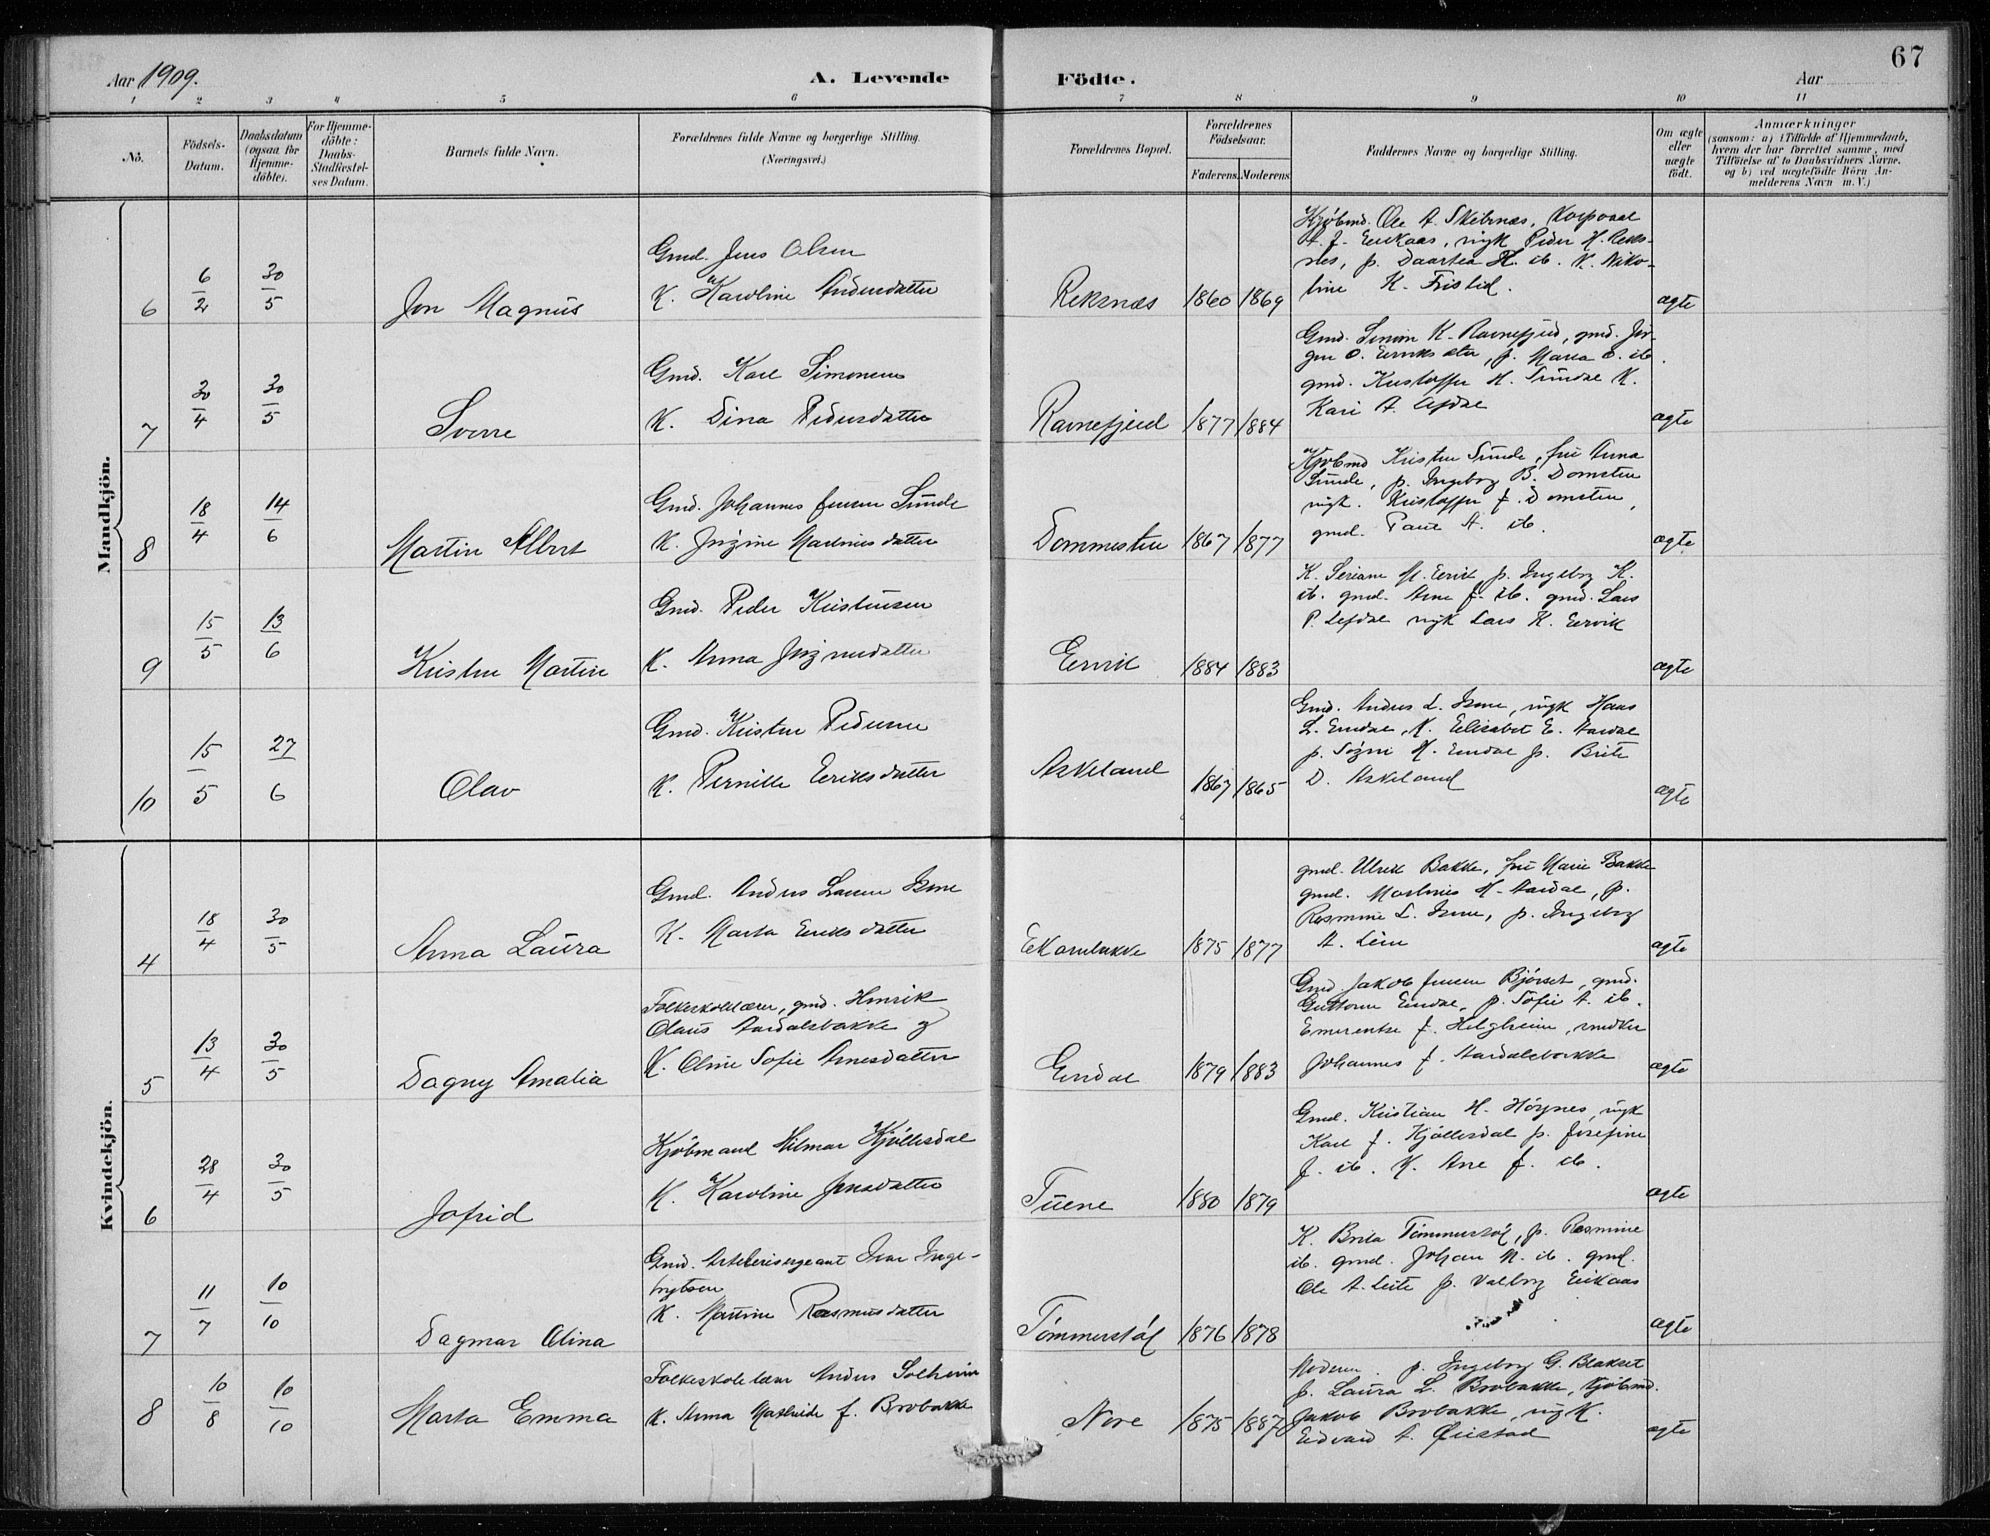 67
Aar 1909.
A. Levende
Födte.
Aar
1 2 3 4 5 6 7 8 9 10 11
No.
Födsels-
Datum.
Daabsdatum
(ogsaa for
Hjemme-
döbte).
For Hjemme-
döbte:
Daabs-
Stadfæstel-
ses Datum.
Barnets fulde Navn.
Forældrenes fulde Navne og borgerlige Stilling.
(Næringsvei.)
Forældrenes Bopæl.
Forældrenes
Födselsaar.
Faderens. Moderens.
Faddernes Navne og borgerlige Stilling.
Om ægte
eller
uægte
födt.
Anmærkninger
(saasom: a) i Tilfælde af Hjemmedaab,
hvem der har forrettet samme, med
Tilföielse af to Daabsvidners Navne,
og b) ved uægtefödte Börn An-
melderens Navn m. V.)
Mandkjön.
6
6/2
30/5
Jon Magnus
Gmd. Jens Olsen
K. Karoline Andersdatter
Reksnæs
1860 1869
Kjöbmd. Ole A. Skibenæs, Korporal
A. J. Eerikaas, ungk Peder H. Reks-
næs, p. Daartea H. ib. K. Niko-
line K. Fristid.
ægte
7
30/4
30/5
Sverre
Gmd. Karl Simonsen
K. Dina Pedersdatter
Ravnefjeld
1877 1884
Gmd. Simon K. Ravnefjeld, gmd. Jör-
gen O. p. Maria O. ib.
gmd. Kristoffer H. Sundal K.
Kari A. Lefdal
ægte
8
18/4
14/6
Martin Albert
Gmd. Johannes Jensen Sunde
K. Martinusdatter
Dommesten
1867 1877
Kjöbmd Kristen Sunde, fru Anna
Sunde, p. Ingeborg B. Domsten
ungk. Kristoffer J. Domsten,
gmd. Paul A. ib.
ægte
9
15/5
13/6
Kristen Martin
Gmd. Peder Kristensen
K. Anna
Ervik
1884 1883
K. M. Ervik p. Ingeborg K.
ib. gmd. Arne J. ib. gmd. Lars
P. Lefdal ungk Lars K. Eervik
ægte
10
15/5
27/6
Olav
Gmd. Kristen Pedersen
K. Pernille Eeriksdatter
Askeland
1867 1865
Gmd. Anders L. Isene, ungk Hans
L. Eendal, K. Elisabet E. Aardal
p. H. Eendal p. Brite
D. Askeland
ægte
Kvindekjön.
4
18/4
30/5
Anna Laura
Gmd. Anders Larsen Isene
K. Marta Eeriksdatter
1875 1877
gmd. Ulrik Bakke, fru Marie Bakke
gmd. Martinus M. Aardal, p.
Rasmine L. Isene, p. Ingeborg
A. Leire
ægte
5
13/4
30/5
Dagny Amalia
Folkeskolelærer, gmd. Henrik
Olaus Aardalsbakke og
K. Oline Sofie Arnesdatter
Endal
1879 1883
Gmd. Jakob Jensen Bjørset, gmd.
Guttorm Eendal, p. Sofie A. ib.
Emerentse J. Helgheim, snedker
Johannes J. Aardalsbakke
ægte
6
28/4
30/5
Jofrid
Kjöbmand Hilmar Kjöllesdal
K. Karoline Jensdatter
Tuene
1880 1879
Gmd. Kristian H. Höynes, ungk
Karl J. Kjöllesdal p. Josefine
J. ib. K. Ane J. ib.
ægte
7
11/7
10/10
Dagmar Olina
Gmd. Artillerisergeant Ivar Inge-
brigtsen
K. Martine Rasmusdatter
Tömmerstöl
1876 1878
K. Brita Tömmerstöl, p. Rasmine
ib. gmd. Johan N. ib. gmd.
Ole A. Leite p. Valborg Eerikaas
ægte
8
10/8
10/10
Marta Emma
Folkeskolelærer Anders Solheim
K. Anna Mathilde f. Brobakke
Nore
1875 1887
Moderen p. Ingeborg G. Blakset
p. Laura L. Brobakke, Kjöbmd.
Jakob Brobakke, ungk.
Edvard A. Øristad
ægte